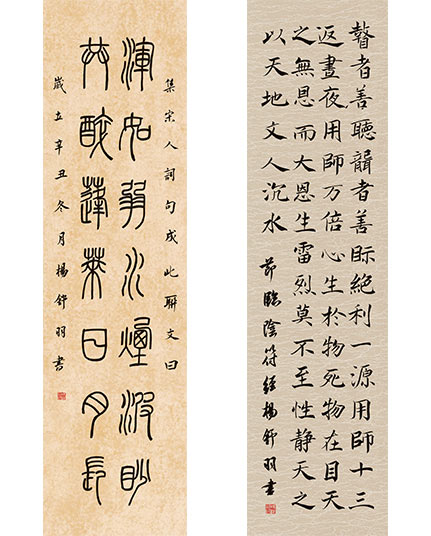 瞽者善聽聾者善眎絕利一源用師十三
返晝夜用師万倍心生於物死物在目天
之無恩而大恩生雷烈莫不至性靜天之
以天地文人沉水
節臨陰符經楊舒羽書
集宋人詞句成此聯文曰
渾如弱水煙波眇
共醉蓬萊日月長
歲在辛丑冬月楊舒羽書